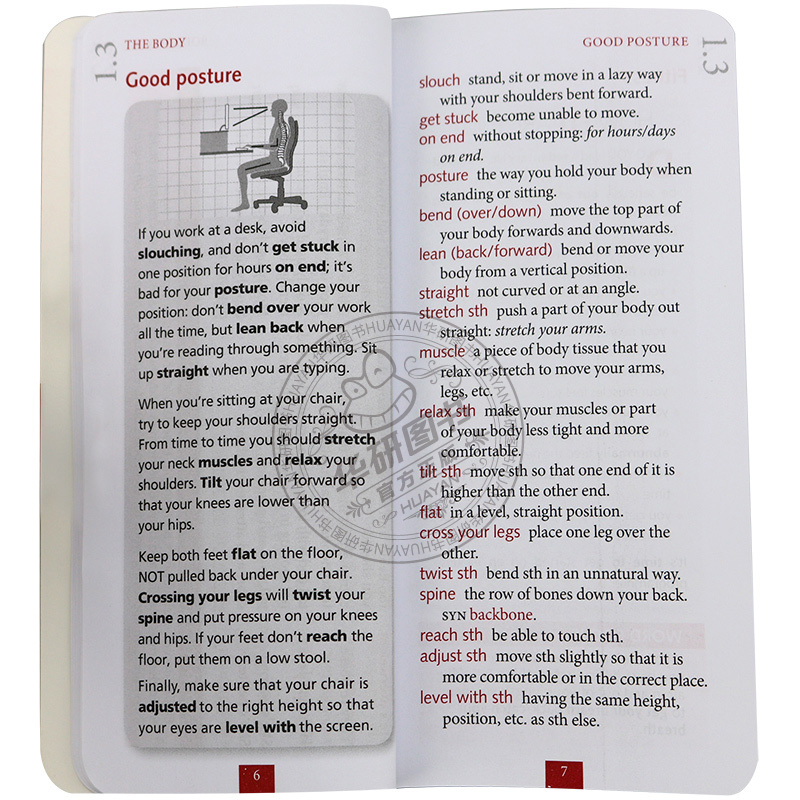 1.3
THE BODY
Good posture
If you work at a desk, avoid
slouching, and don't get stuck in
one position for hours on end; it's
bad for your posture. Change your
position: don't bend over your work
all the time, but lean back when
you're reading through something. Sit
up straight when you are typing.
When you're sitting at your chair,
try to keep your shoulders straight.
From time to time you should stretch
your neck muscles and relax your
shoulders. Tilt your chair forward so
that your knees are lower than
your hips.
Keep both feet flat on the floor,
NOT pulled back under your chair.
Crossing your legs will twist your
spine and put pressure on your knees
and hips. If your feet don't reach the
floor, put them on a low stool.
Finally, make sure that your chair is
adjusted to the right height so that
your eyes are level with the screen.
6
GOOD POSTURE
1.3
slouch stand, sit or move in a lazy way
with your shoulders bent forward.
get stuck become unable to move.
on end without stopping: for hours/days
on end.
posture the way you hold your body when
standing or sitting.
bend (over/down) move the top part of
your body forwards and downwards.
lean (back/forward) bend or move your
body from a vertical position.
straight not curved or at an angle.
stretch sth push a part of your body out
straight: stretch your arms.
muscle a piece of body tissue that you
relax or stretch to move your arms,
legs, etc.
relax sth make your muscles or part
of your body less tight and more
comfortable.
tilt sth move sth so that one end of it is
higher than the other end.
flat in a level, straight position.
cross your legs place one leg over the
other.
twist sth bend sth in an unnatural way.
spine the row of bones down your back.
SYN backbone.
reach sth be able to touch sth.
adjust sth move sth slightly so that it is
more comfortable or in the correct place.
level with sth having the same height,
position, etc. as sth else.
7
华研图书HUAYAN
华研图书
官方正版